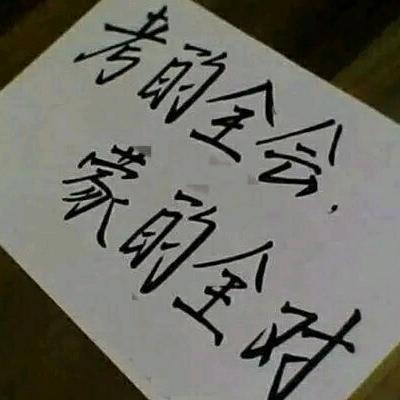 考的全会.
蒙的全对